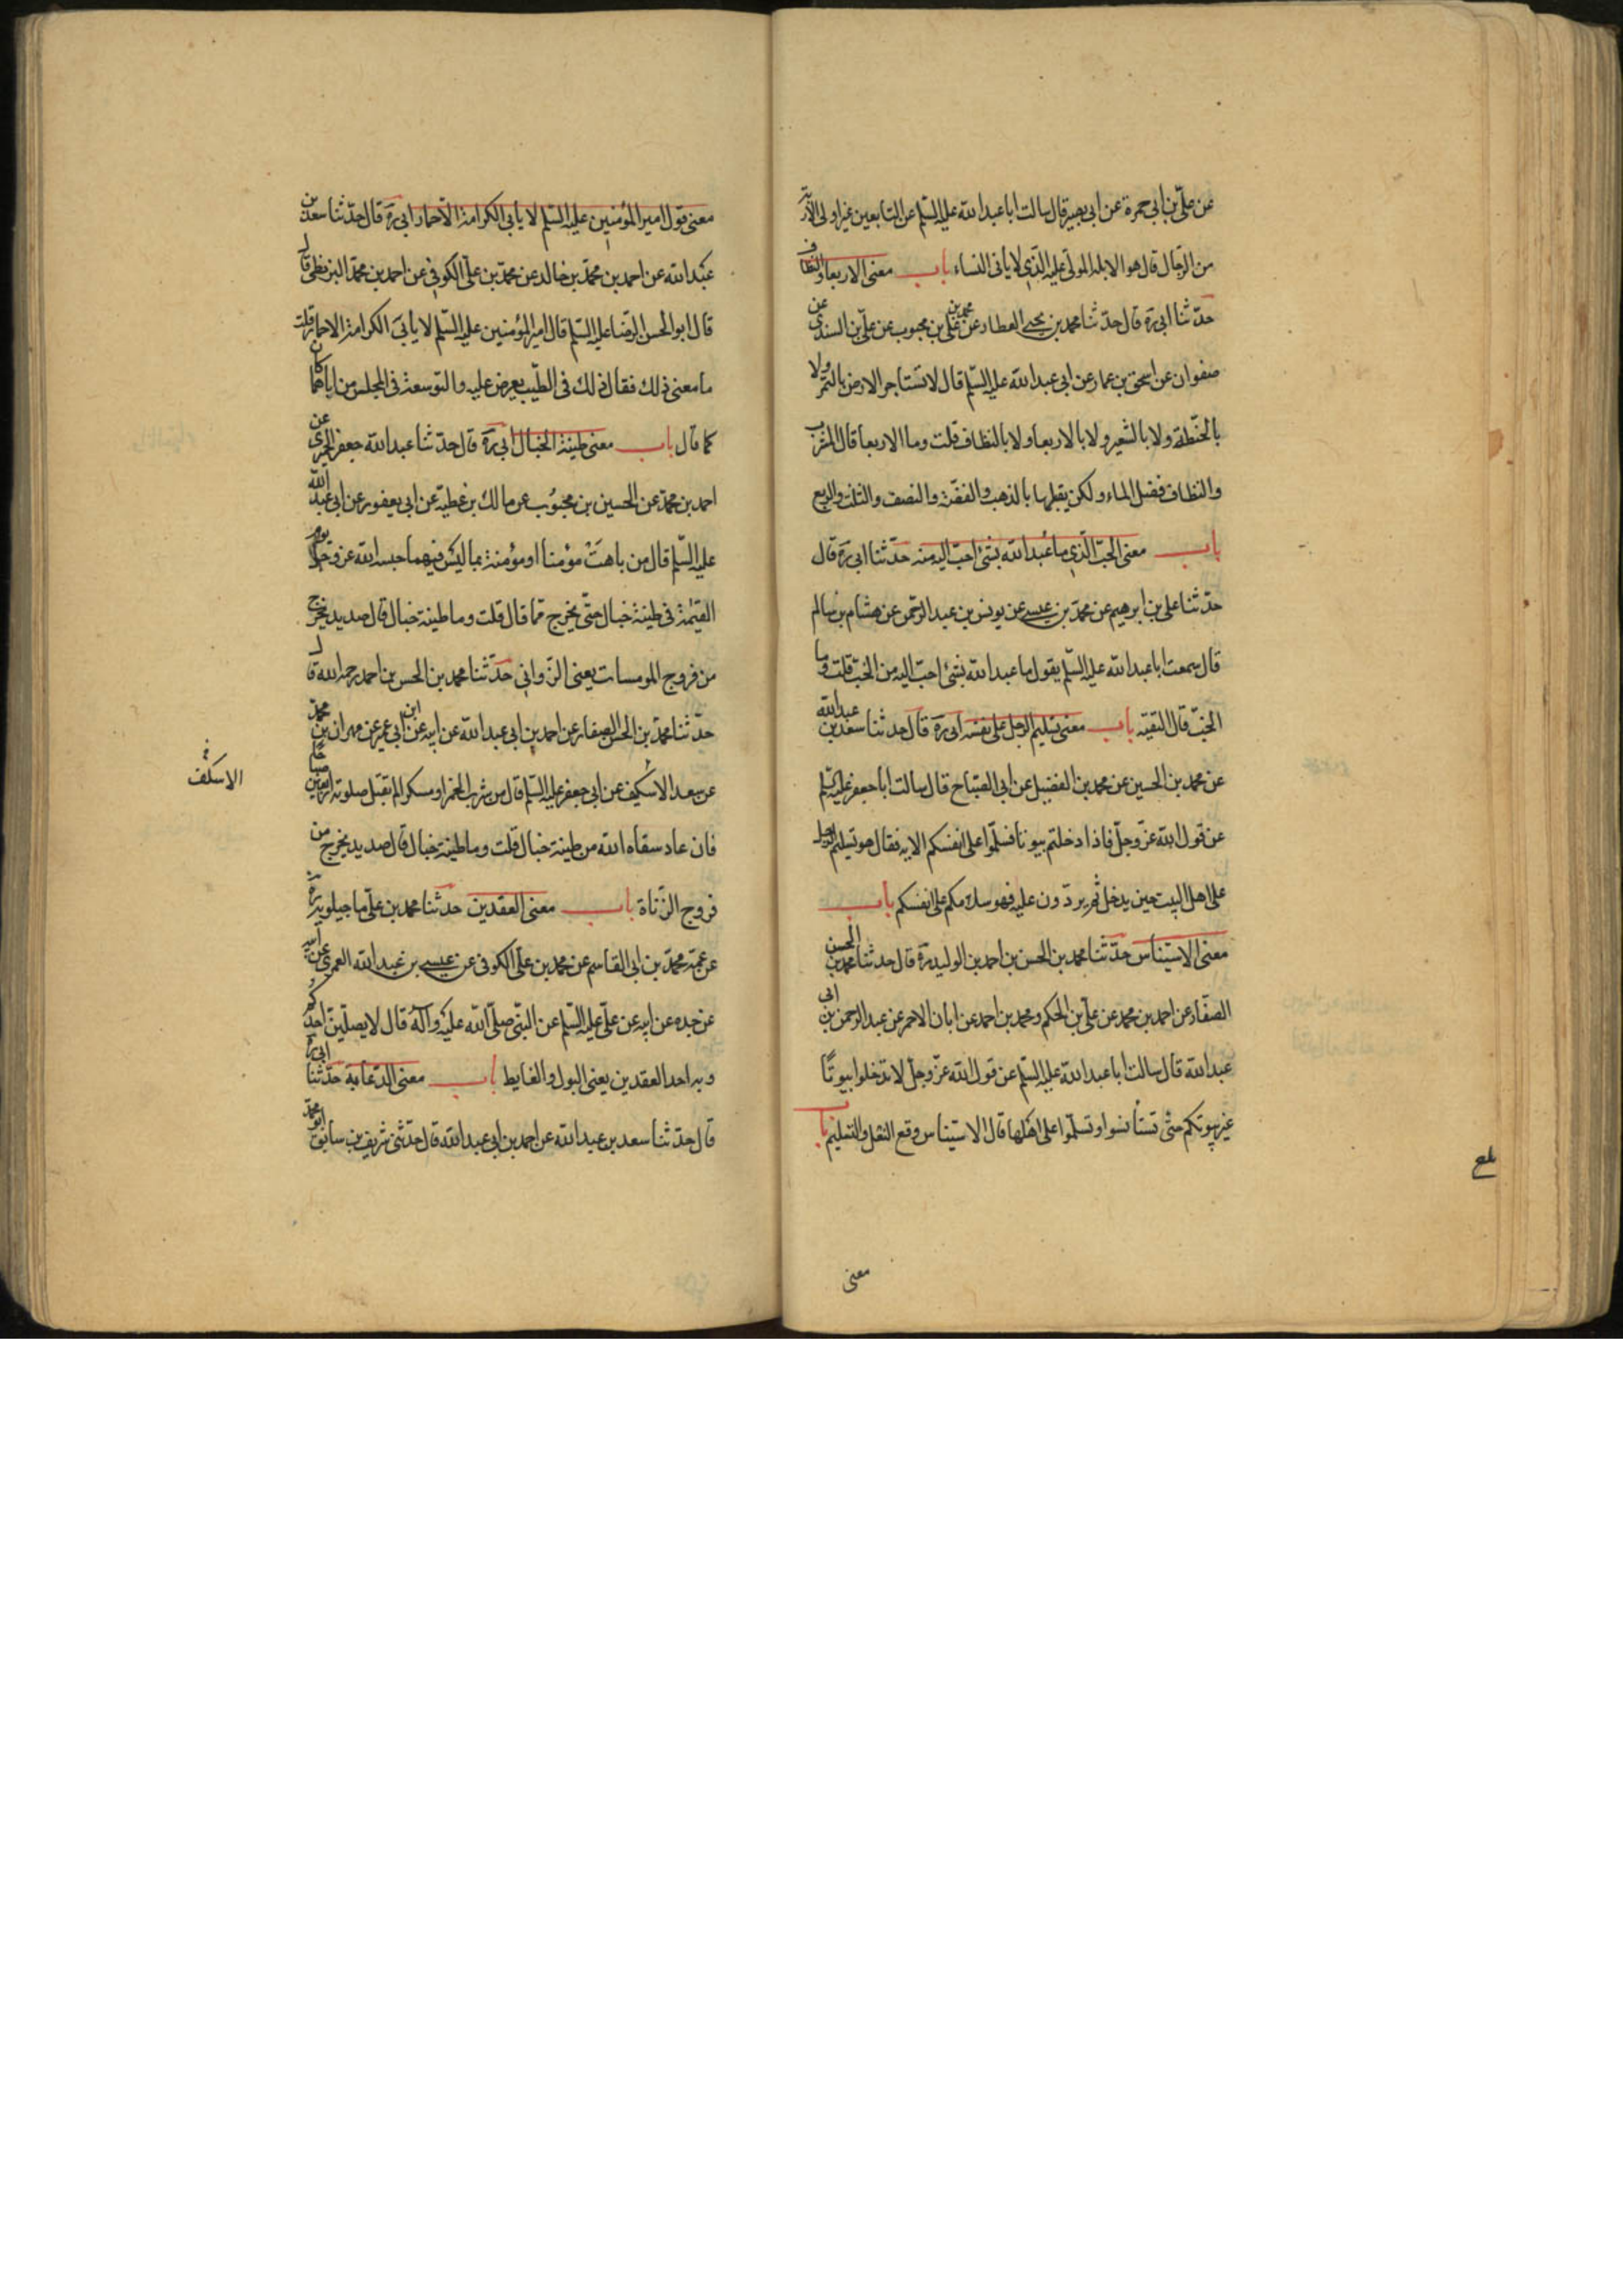 عن علىّ بن أبي حمزة عن ابى بصير قال سالت ابا عبد الله عليه السّلم عن التابعين غير اولى الاربة
من الرجال قال هو الابله المولّى عليه الذى لا ياتى النساء باب معنى الاربعا والنطاف
حدّثنا ابى ره قال حدّثنا محمد بن يحيى العطار عن محمد بن على بن محبوب عن علىّ بن السندى عن
صفوان عن اسحق بن عمار عن ابى عبد الله عليه السّلم قال لا تستاجر الارض بالتمر ولا
بالحنطة ولا بالشعير ولا بالاربعا ولا بالنطاف قلت وما الاربعا قال الشرب
والنطاف فضل الماء ولكن يقبلها بالذهب والفضّة والنصف والثلث والربع
باب معنى الخبّ الّذى ما عُبد الله بشئ احبّ اليه منه حدّثنا ابى ره قال
حدّثنا على بن ابرهيم عن محمّد بن عيسى عن يونس بن عبد الرحمن عن هشام بن سالم
قال سمعت ابا عبد الله عليه السّلم يقول ما عبد الله بشئ احبّ اليه من الخبّ قلت وما
الخبّ قال التقيّه باب معنى تسليم الرجل على نفسه ابى ره قال حدثنا سعد بن عبد الله
عن محمد بن الحسين عن محمد بن الفضيل عن ابى الصّباح قال سالت ابا جعفر عليه السّلم
عن قول الله عزّ وجلّ فاذا دخلتم بيوتا فسلّموا على انفسكم الايه فقال هو تسليم الرجل
على اهل البيت حين يدخل ثم يردّون عليه فهو سلامكم على انفسكم باب
معنى الاستيناس حدّثنا محمد بن الحسن بن احمد بن الوليد ره قال حدثنا محمد بن الحسن
الصفّار عن احمد بن محمد عن علىّ بن الحكم ومحمد بن احمد عن ابان الاحمر عن عبد الرحمن بن ابى
عبد الله قال سالت ابا عبد الله عليه السّلم عن قول الله عزّ وجلّ لا تدخلوا بيوتًا
غير بيوتكم حتّى تستأنسوا وتسلّموا على اهلها قال الاستيناس وقع النعل والتسليم باب
معنى
معنى قول امير المؤمنين عليه السّلم لا يابى الكرامة الّا حمار ابى ره قال حدّثنا سعد بن
عبد الله عن احمد بن محمّد بن خالد عن محمّد بن علىّ الكوفى عن احمد بن محمّد البزنطى قال
قال ابو الحسن الرضا عليه السّلم قال امير المؤمنين عليه السّلم لا يأبى الكرامة الا حمار قلت
ما معنى ذلك فقال ذلك فى الطّيب يعرض عليه والتوسعة فى المجلس من اباهما كان
كما قال باب معنى طينة الخبال ابى ره قال حدّثنا عبد الله جعفر الحميرى عن
احمد بن محمّد عن الحسين بن محبُوب عن مالك بن عطية عن ابى يعفور عن ابى عبد الله
عليه السّلم قال من باهتَ مؤمنا او مؤمنة بما ليس فيهما حبسه الله عز وجل يوم
القيٰمة فى طينة خبال حتّى يخرج ممّا قال قلت وما طينة خبال قال صديد يخرج
من فروج المومسات يعنى الزّوانى حدّثنا محمد بن الحسن بن احمد رحمه الله قال
حدّثنا محمّد بن الحسن الصفار عن احمد بن ابى عبد الله عن ابيه عن ابن أبي عمير عن مهران بن محمّد
عن سعد الاسكيف عن ابى جعفر عليه السّلم قال من شرب الخمر او مسكرا لم تقبل صلوته اربعين صباحا
فان عاد سقاه الله من طينة خبال قلت وما طينة خبال قال صديد يخرج من
فروج الزّناة باب معنى العقدين حدثنا محمد بن علىّ ماجيلويه ره
عن عمّه محمّد بن ابى القاسم عن محمد بن علىّ الكوفى عن عيسى بن عبد الله العمرى عن ابيه
عن جده عن ابيه عن علىّ عليه السّلم عن النبىّ صلّى الله عليه وآله قال لا يصلّينّ احدكم
وبه احد العقدين يعنى البول والغايط باب معنى الدّعابة حدّثنا ابى ره
قال حدّثنا سعد بن عبد الله عن احمد بن ابى عبد الله قال حدّثنى شريف بن سابق
الاسكف
بلغ